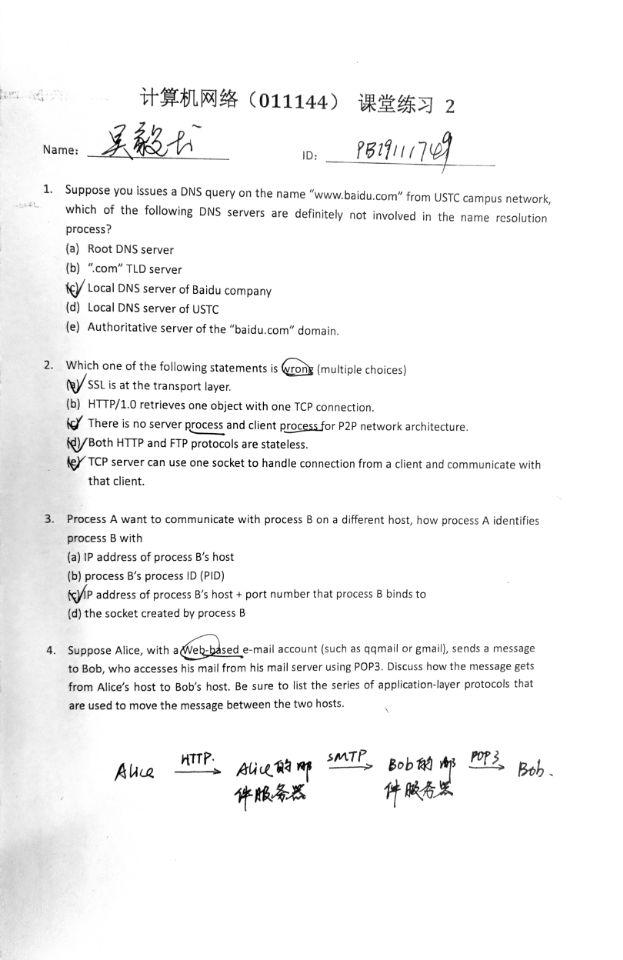 计算机网络（011144） 课堂练习 2
Name: 吴毅
ID: PB19111749
1. Suppose you issues a DNS query on the name “www.baidu.com” from USTC campus network,
which of the following DNS servers are definitely not involved in the name resolution
process?
(a) Root DNS server
(b) “.com” TLD server
(c) Local DNS server of Baidu company
(d) Local DNS server of USTC
(e) Authoritative server of the “baidu.com” domain.
2. Which one of the following statements is wrong (multiple choices)
(a) SSL is at the transport layer.
(b) HTTP/1.0 retrieves one object with one TCP connection.
(c) There is no server process and client process for P2P network architecture.
(d) Both HTTP and FTP protocols are stateless.
(e) TCP server can use one socket to handle connection from a client and communicate with
that client.
3. Process A want to communicate with process B on a different host, how process A identifies
process B with
(a) IP address of process B’s host
(b) process B’s process ID (PID)
(c) IP address of process B’s host + port number that process B binds to
(d) the socket created by process B
4. Suppose Alice, with a Web-based e-mail account (such as qqmail or gmail), sends a message
to Bob, who accesses his mail from his mail server using POP3. Discuss how the message gets
from Alice’s host to Bob’s host. Be sure to list the series of application-layer protocols that
are used to move the message between the two hosts.
HTTP. SMTP POP3
Alice → Alice的邮 → Bob的邮 → Bob.
件服务器 件服务器